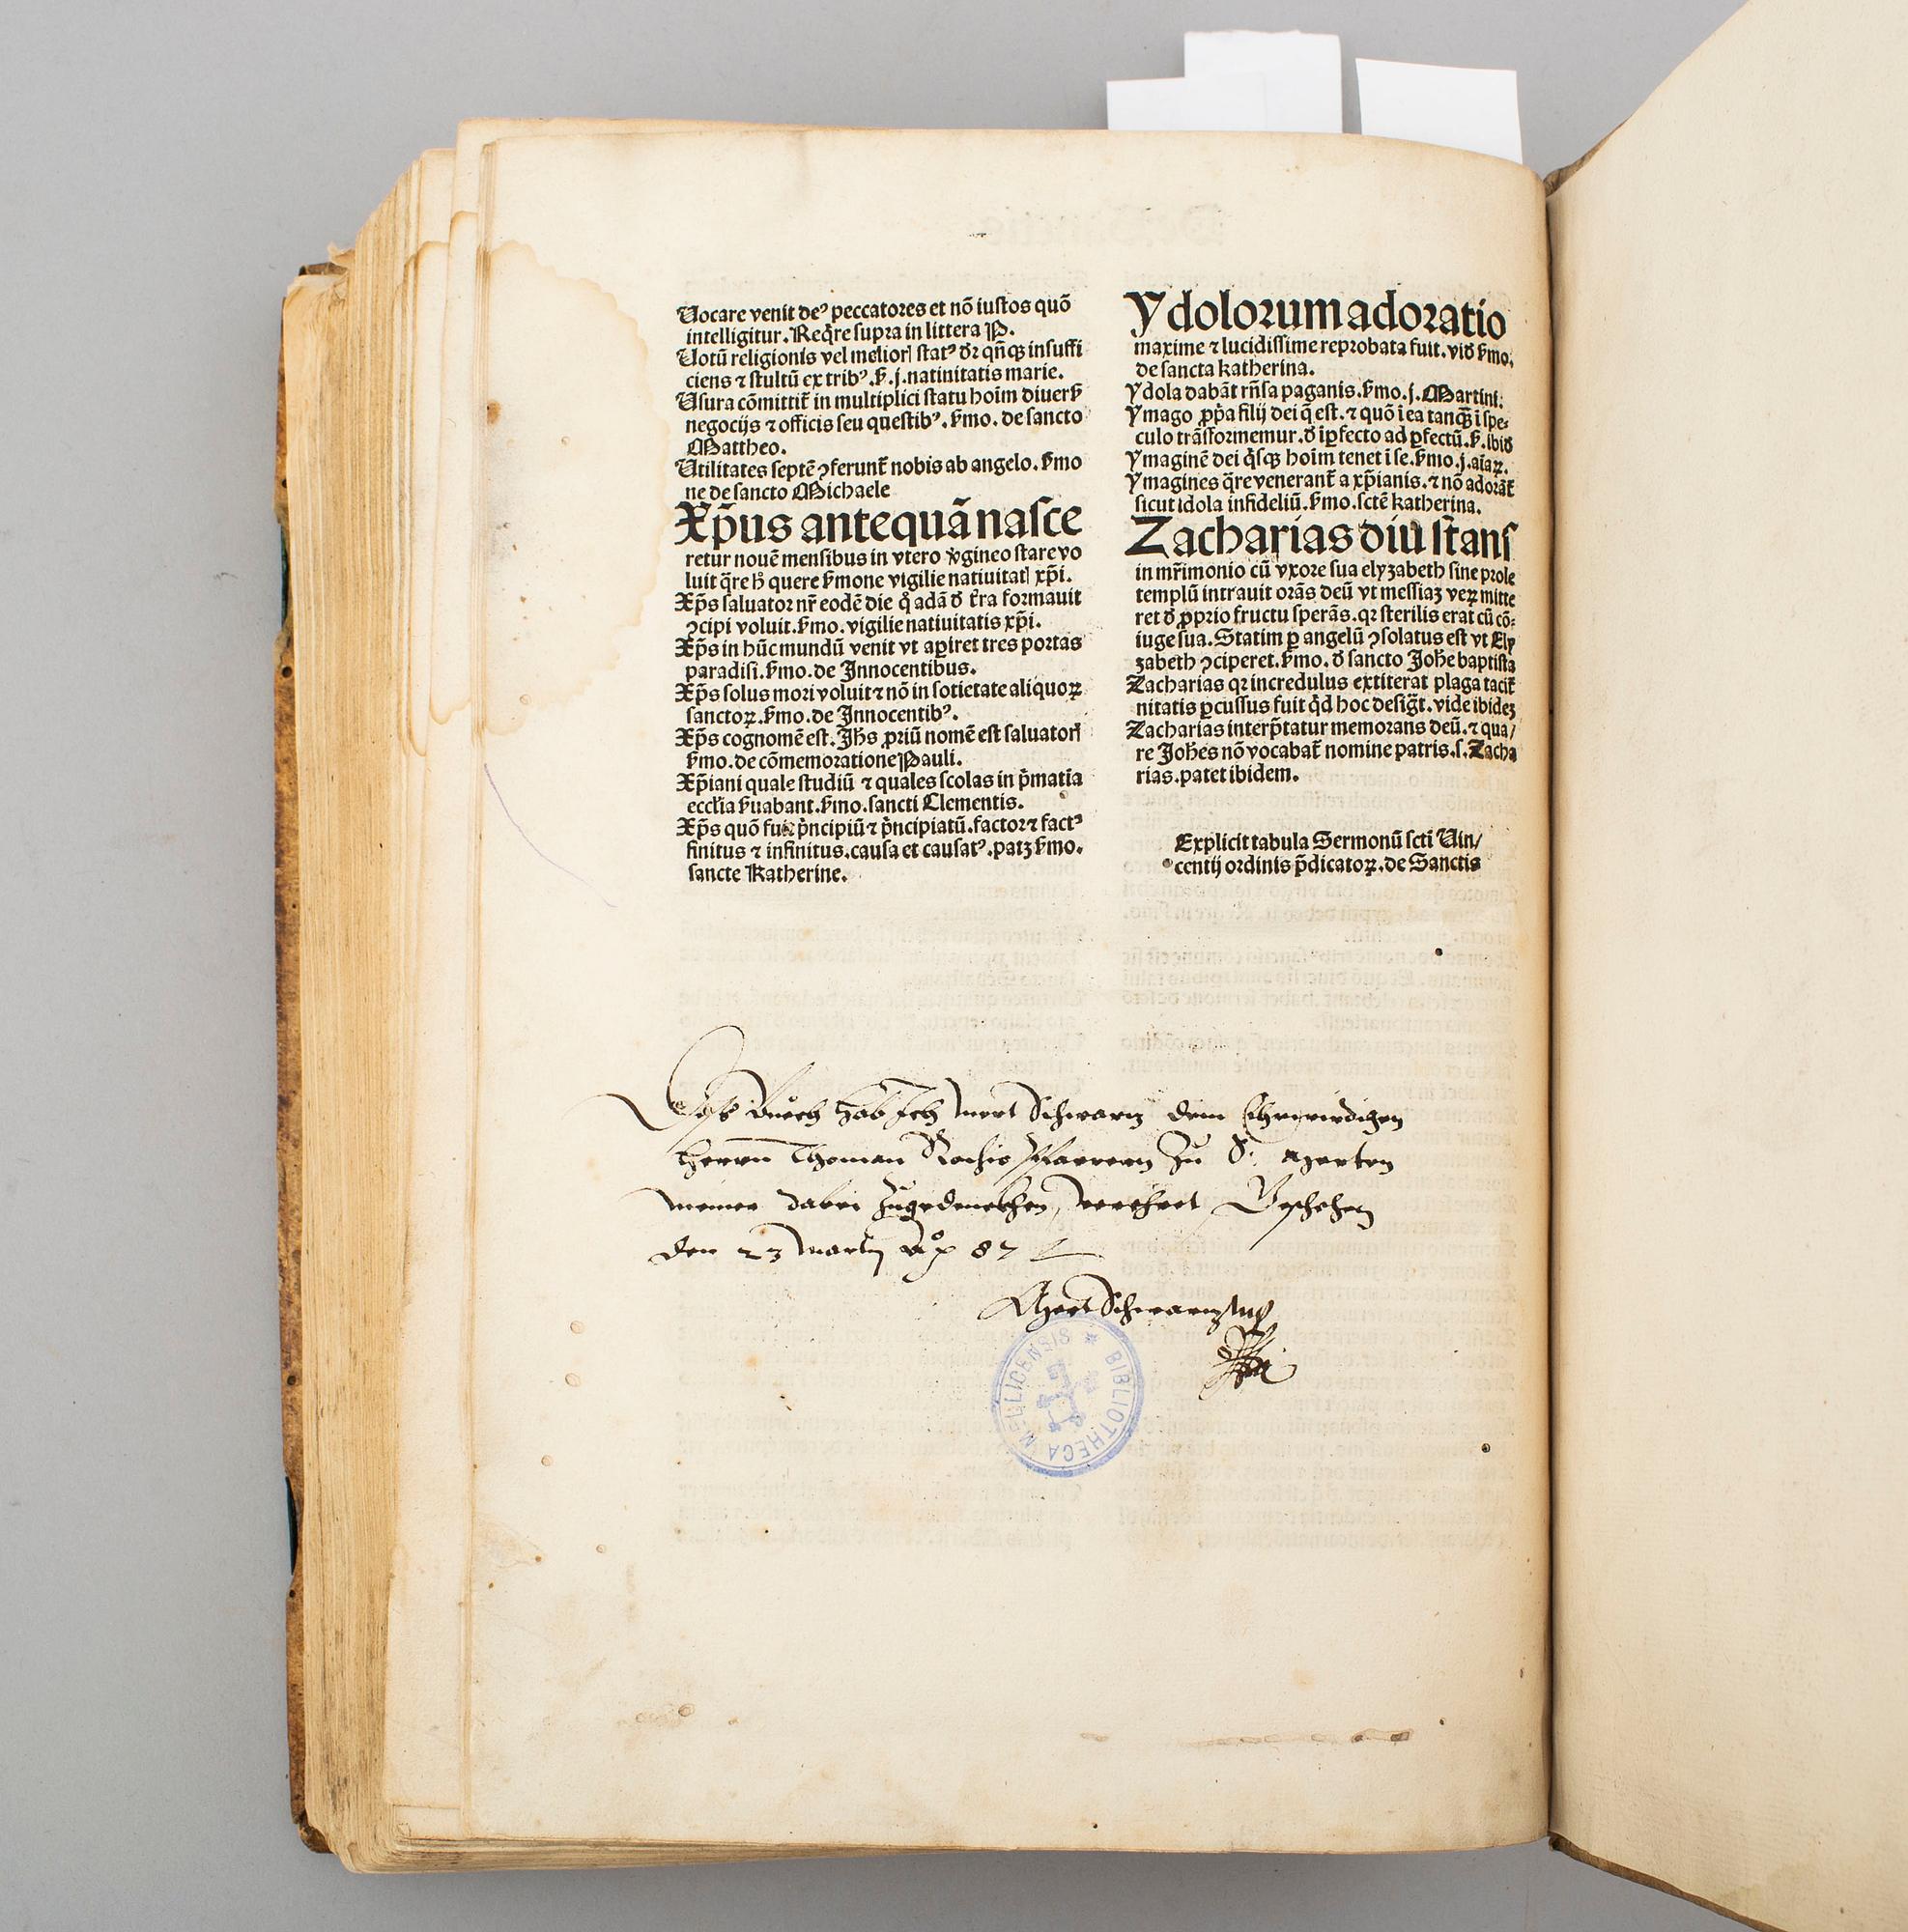 Uocare venit deꝰ peccatores et nō iustos quō
intelligitur. Req̄re supra in littera P.
Uotū religionis vel melioꝝ statꝰ dꝛ qn̄qꝫ insuffi
ciens ⁊ stultū ex tribꝰ. ẜ. j. natiuitatis marie.
Usura cōmittit̄ in multiplici statu hoīm diuerẜ
negocijs ⁊ officis seu questibꝰ. ẜmo. de sancto
Mattheo.
Utilitates septē ꝯferunt̄ nobis ab angelo. ẜmo
ne de sancto Michaele
Xp̄us antequā nasce
retur nouē mensibus in vtero v̄gineo stare vo
luit q̄re hͦ quere ẜmone vigilie natiuitatꝭ xp̄i.
Xp̄s saluator nr̄ eodē die qͦ adā đ t̄ra formauit
ꝯcipi voluit. ẜmo. vigilie natiuitatis xp̄i.
Xp̄s in hūc mundū venit vt aꝑiret tres portas
paradisi. ẜmo. de Innocentibus.
Xp̄s solus mori voluit ⁊ nō in sotietate aliquoꝝ
sanctoꝝ. ẜmo. de Innocentibꝰ.
Xp̄s cognomē est. Jh̄s ꝓriū nomē est saluatorꝭ
ẜmo. de cōmemoratione Pauli.
Xp̄iani quale studiū ⁊ quales scolas in p̄matia
eccl̄ia ẜuabant. ẜmo. sancti Clementis.
Xp̄s quō fuit p̄ncipiū ⁊ p̄ncipiatū. factor ⁊ factꝰ
finitus ⁊ infinitus. causa et causatꝰ. patꝫ ẜmo.
sancte Katherine.
Ydoloꝛum adoꝛatio
maxime ⁊ lucidissime reprobata fuit. vid̄ ẜmo.
de sancta katherina.
Ydola dabāt rn̄sa paganis. ẜmo. j. Martini.
Ymago ꝓp̄a filij dei q̄ est. ⁊ quō ī ea tanqꝫ̄ ī spe⸗
culo trāsformemur. đ īꝑfecto ad ꝑfectū. ẜ. ibid̄
Ymaginē dei q̄sqꝫ hoīm tenet ī se. ẜmo. j. aīaꝝ.
Ymagines q̄re venerant̄ a xp̄ianis. ⁊ nō adorāt̄
sicut idola infideliū. ẜmo. sctē katherina.
Zacharias diu stans
in mr̄imonio cū vxore sua elyzabeth sine prole
templū intrauit orās deū vt messiaꝫ veꝝ mitte
ret đ ꝓprio fructu sperās. qꝛ sterilis erat cū cō⸗
iuge sua. Statim ꝑ angelū ꝯsolatus est vt Ely
zabeth ꝯciperet. ẜmo. đ sancto Joh̄e baptista
Zacharias qꝛ incredulus extiterat plaga tacit̄
nitatis ꝑcussus fuit q̄d hoc desiḡt. vide ibideꝫ
Zacharias interp̄tatur memorans deū. ⁊ qua/
re Joh̄es nō vocabat̄ nomine patris. s. Zacha
rias. patet ibidem.
Explicit tabula Sermonū scti Uin/
centij ordinis p̄dicatoꝝ. de Sanctis
Dises Buech hab Ich Mert Schwarz dem Ehrwirdigen
Herrn Thoman Pfarrern Zu S:
meiner dabei Zugedenckhen, verehret, Beschehen
den 23 Marty Aō 87
Mert Schwarz
BIBLIOTHECA MELLICENSIS